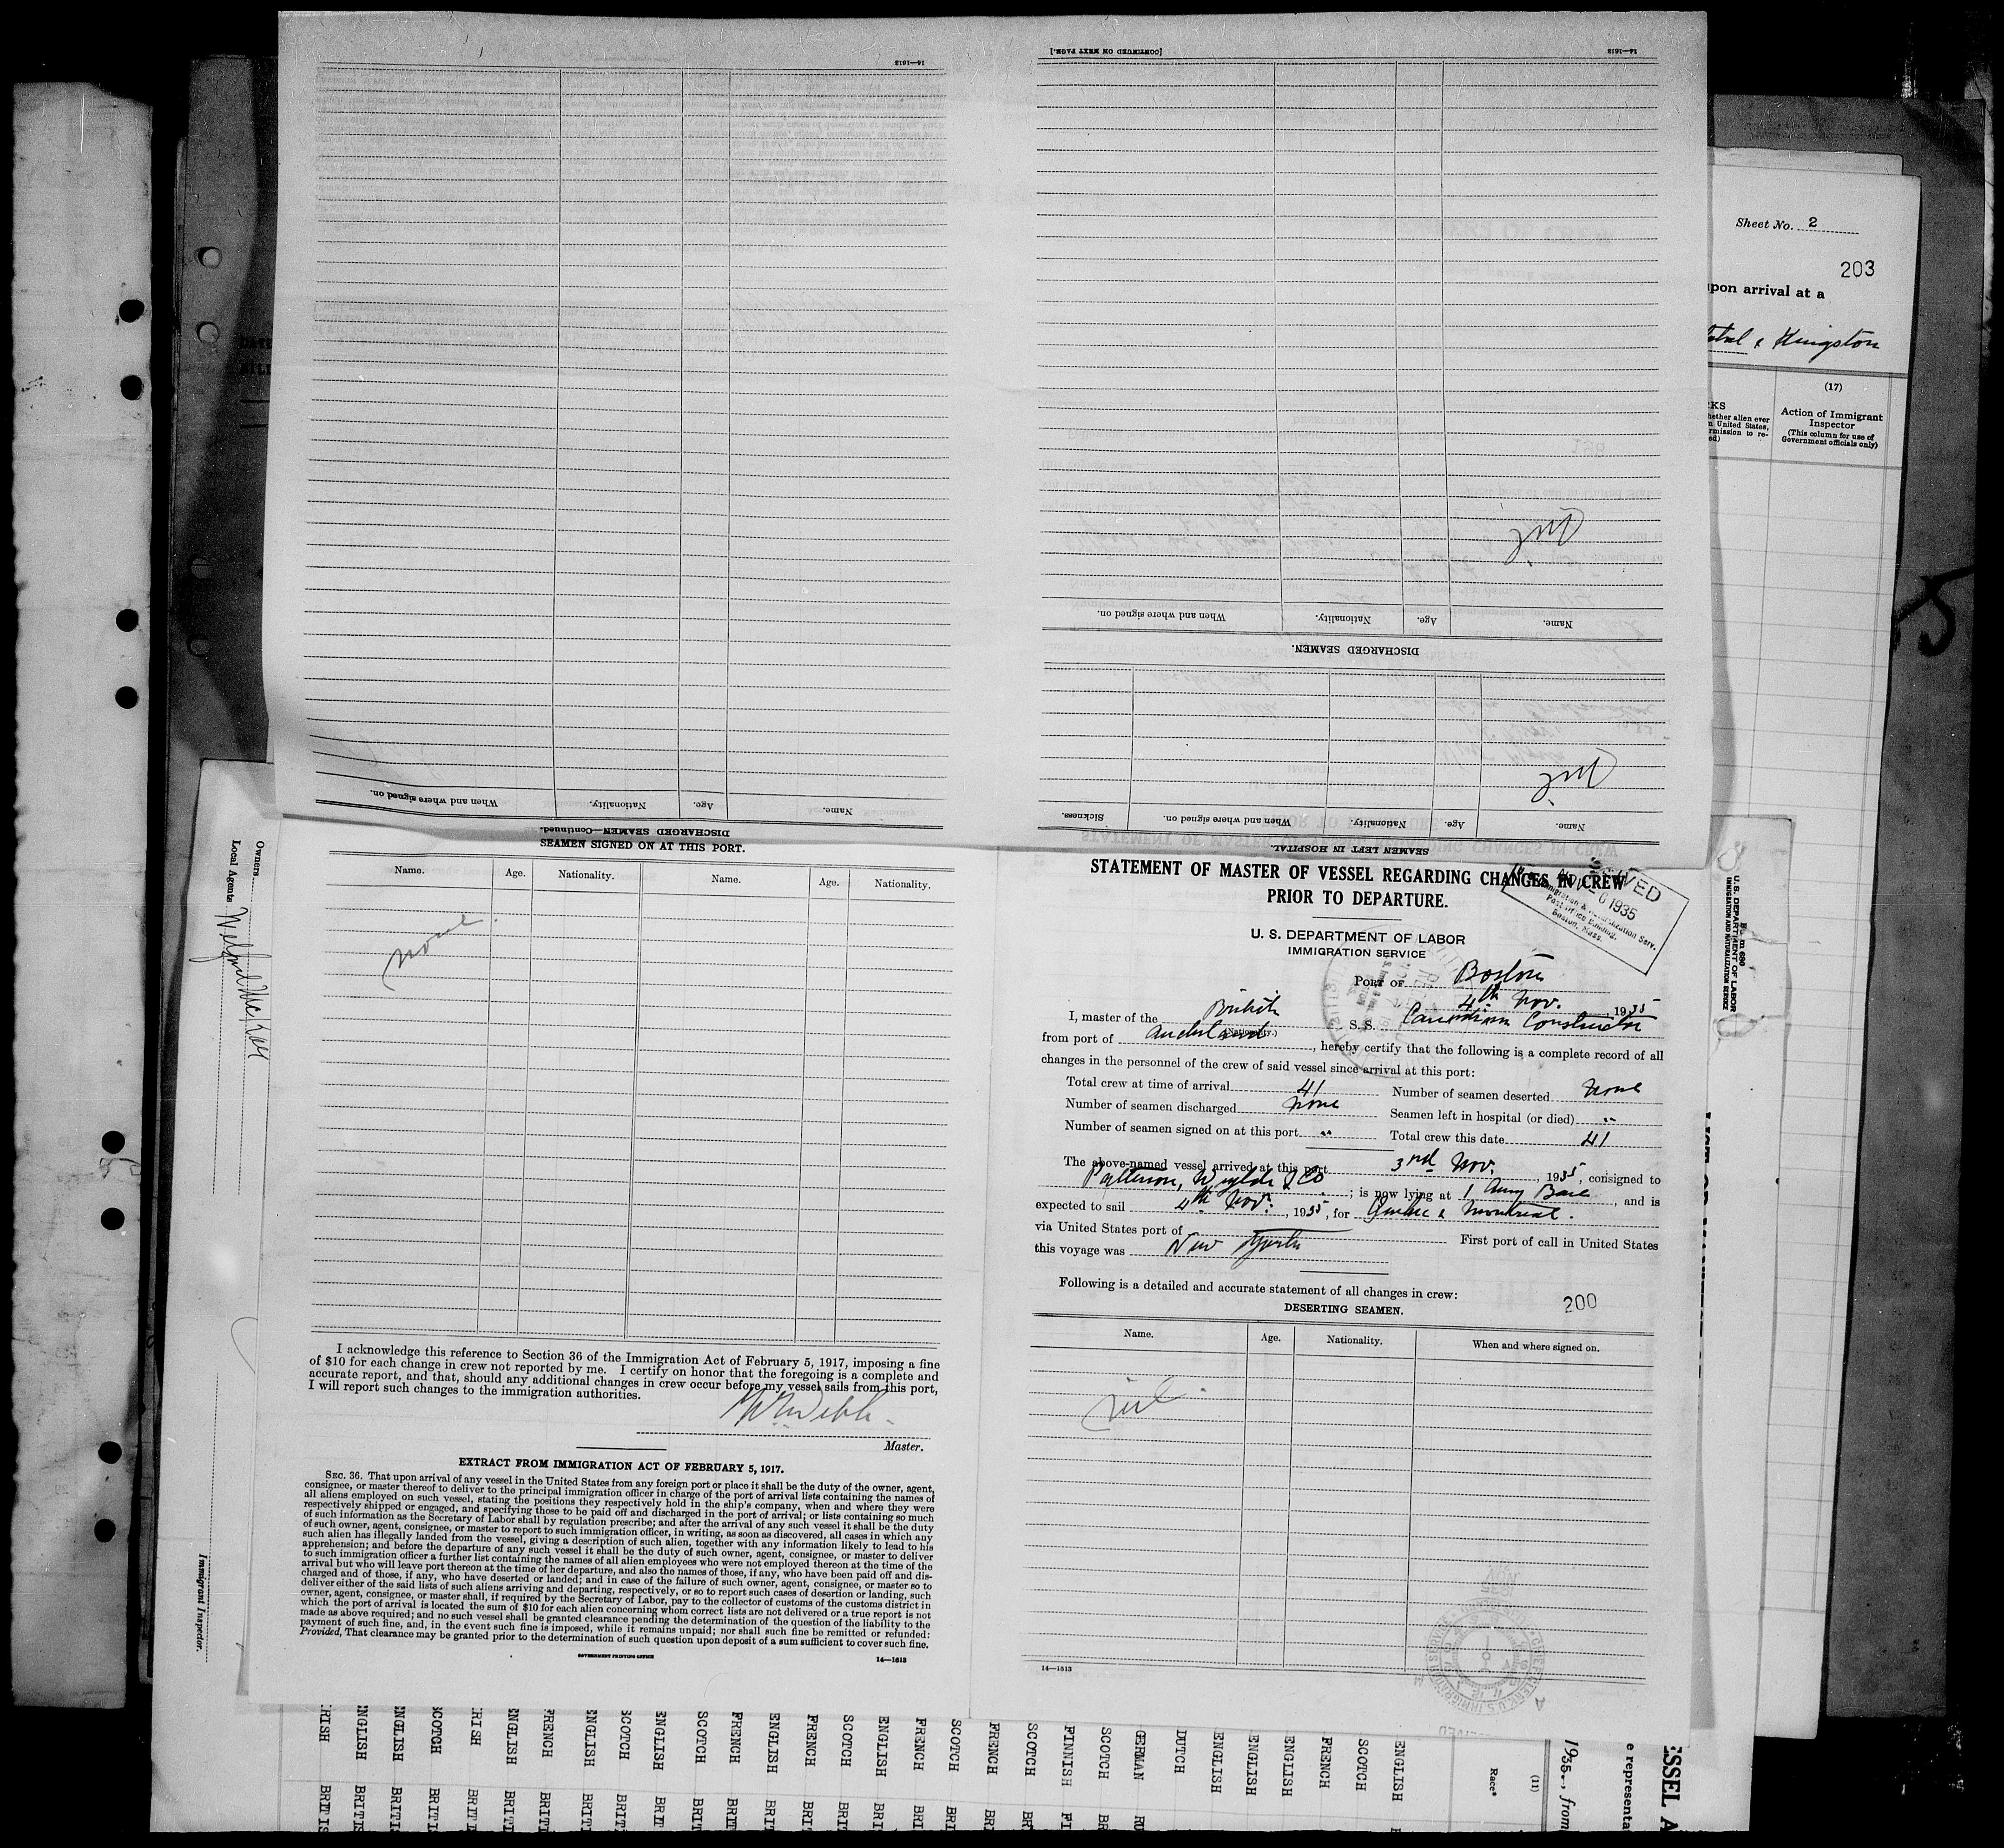 [CONTINUED ON NEXT PAGE.]
14—1613
14—1613
Sheet No. 2
203
upon arrival at a
& Kingston
(17)
Action of Immigrant
Inspector
(This column for use of
Government officials only)
hether alien ever
n United States,
rmission to re-
ed)
Nil
Name. Age. Nationality. When and where signed on.
DISCHARGED SEAMEN.
Nil
Name. Age. Nationality. When and where signed on. Sickness.
SEAMEN LEFT IN HOSPITAL.
Name. Age. Nationality. When and where signed on.
DISCHARGED SEAMEN—Continued.
SEAMEN SIGNED ON AT THIS PORT.
Name. Age. Nationality. Name. Age. Nationality.
none.
I acknowledge this reference to Section 36 of the Immigration Act of February 5, 1917, imposing a fine
of $10 for each change in crew not reported by me. I certify on honor that the foregoing is a complete and
accurate report, and that, should any additional changes in crew occur before my vessel sails from this port,
I will report such changes to the immigration authorities.
Webb
Master.
EXTRACT FROM IMMIGRATION ACT OF FEBRUARY 5, 1917.
SEC. 36. That upon arrival of any vessel in the United States from any foreign port or place it shall be the duty of the owner, agent,
consignee, or master thereof to deliver to the principal immigration officer in charge of the port of arrival lists containing the names of
all aliens employed on such vessel, stating the positions they respectively hold in the ship's company, when and where they were
respectively shipped or engaged, and specifying those to be paid off and discharged in the port of arrival; or lists containing so much
of such information as the Secretary of Labor shall by regulation prescribe; and after the arrival of any such vessel it shall be the duty
of such owner, agent, consignee, or master to report to such immigration officer, in writing, as soon as discovered, all cases in which any
such alien has illegally landed from the vessel, giving a description of such alien, together with any information likely to lead to his
apprehension; and before the departure of any such vessel it shall be the duty of such owner, agent, consignee, or master to deliver
to such immigration officer a further list containing the names of all alien employees who were not employed thereon at the time of the
arrival but who will leave port thereon at the time of her departure, and also the names of those, if any, who have been paid off and dis-
charged and of those, if any, who have deserted or landed; and in case of the failure of such owner, agent, consignee, or master so to
deliver either of the said lists of such aliens arriving and departing, respectively, or so to report such cases of desertion or landing, such
owner, agent, consignee, or master shall, if required by the Secretary of Labor, pay to the collector of customs of the customs district in
which the port of arrival is located the sum of $10 for each alien concerning whom correct lists are not delivered or a true report is not
made as above required; and no such vessel shall be granted clearance pending the determination of the question of the liability to the
payment of such fine, and, in the event such fine is imposed, while it remains unpaid; nor shall such fine be remitted or refunded:
Provided, That clearance may be granted prior to the determination of such question upon deposit of a sum sufficient to cover such fine.
GOVERNMENT PRINTING OFFICE
14—1613
STATEMENT OF MASTER OF VESSEL REGARDING CHANGES IN CREW
PRIOR TO DEPARTURE.
U. S. DEPARTMENT OF LABOR
IMMIGRATION SERVICE
1935
Post Office Building,
Boston, Mass.
PORT OF Boston
4th Nov., 1935
I, master of the British S. S. Canadian Constructor
(Nationality.)
from port of Auckland, hereby certify that the following is a complete record of all
changes in the personnel of the crew of said vessel since arrival at this port:
Total crew at time of arrival 41 Number of seamen deserted none
Number of seamen discharged none Seamen left in hospital (or died) "
Number of seamen signed on at this port " Total crew this date 41
The above-named vessel arrived at this port 3rd Nov., 1935, consigned to
Patterson, Wylde & Co; is now lying at 1 Army Base, and is
expected to sail 4th Nov., 1935, for Quebec & Montreal.
via United States port of First port of call in United States
this voyage was New York
Following is a detailed and accurate statement of all changes in crew:
DESERTING SEAMEN.
200
Name. Age. Nationality. When and where signed on.
nil
14—1613
Owners
Local Agents
Immigrant Inspector.
Form 680
U. S. DEPARTMENT OF LABOR
IMMIGRATION AND NATURALIZATION SERVICE
ENGLISH
SCOTCH
FRENCH
ENGLISH
ENGLISH
ENGLISH
DUTCH
GERMAN
SCOTCH
FINNISH
SCOTCH
FRENCH
SCOTCH
FRENCH
ENGLISH
SCOTCH
FRENCH
ENGLISH
FRENCH
SCOTCH
ENGLISH
SCOTCH
ENGLISH
FRENCH
ENGLISH
(11)
Race*
from
e representa
ESSEL A